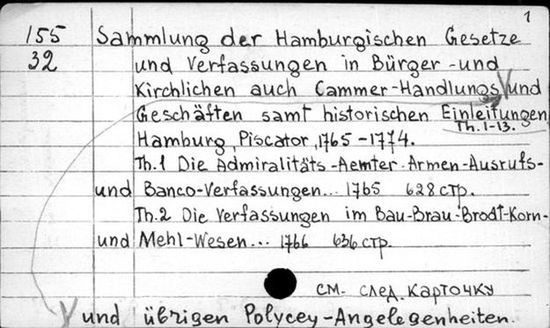 1
155 Sammlung der Hamburgischen Gesetze
32 und Verfassungen in Bürger-und
Kirchlichen auch Cammer-Handlungs V und
Geschäften samt historischen Einleitungen
Th. 1-13.
Hamburg, Piscator, 1765-1774.
Th.1 Die Admiralitäts-Aemter-Armen-Ausrufs-
und Banco-Verfassungen... 1765 628 стр.
Th.2 Die Verfassungen im Bau-Brau-Brodt-Korn-
und Mehl-Wesen... 1766 636 стр.
см. след. карточку
V und übrigen Polycey-Angelegenheiten.